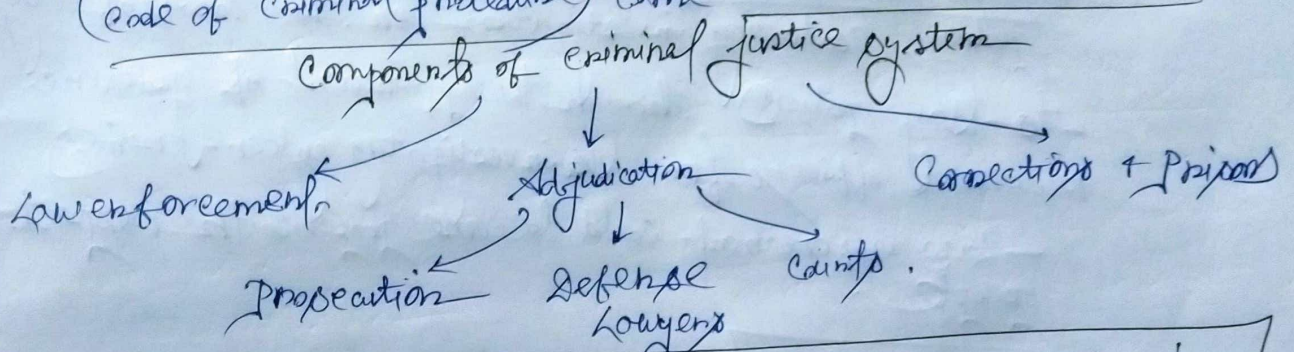 (Code of Criminal Procedure)
Components of criminal justice system
Law enforcement
Adjudication
Corrections + Prisons
Prosecution
Defense
Lowyers
Courts.